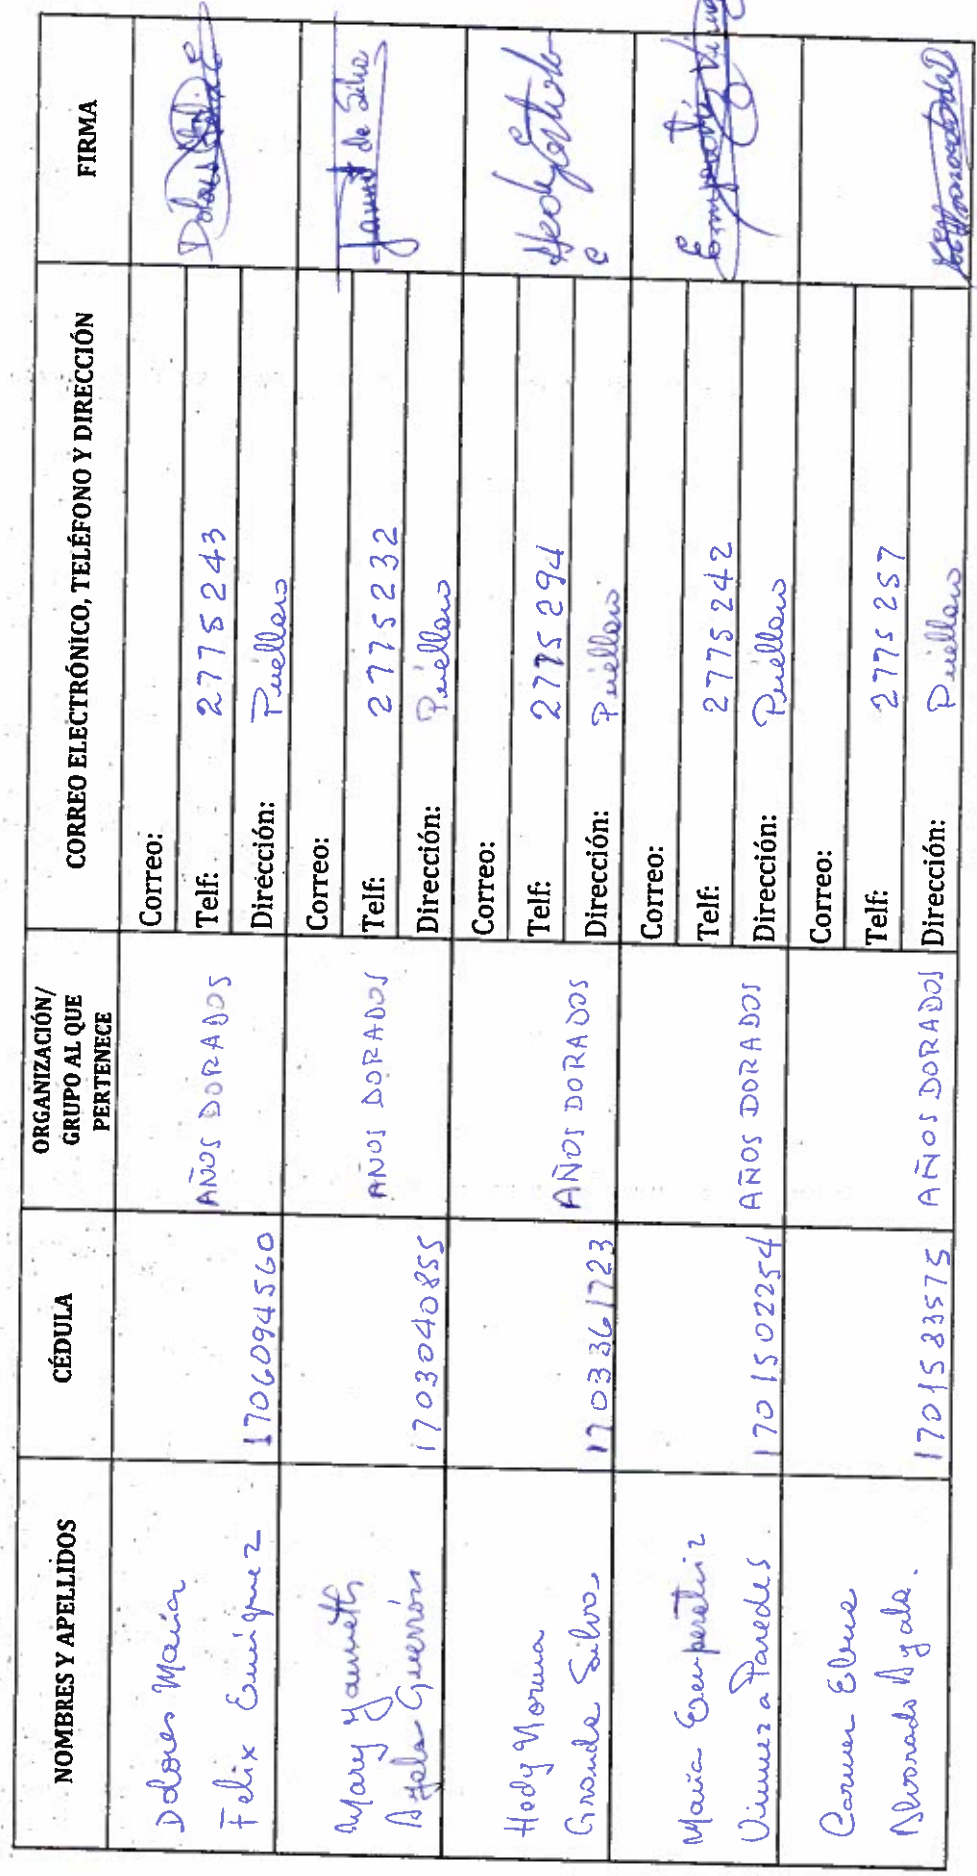 NOMBRES Y APELLIDOS
CÉDULA
ORGANIZACIÓN/
GRUPO AL QUE
PERTENECE
CORREO ELECTRÓNICO, TELÉFONO Y DIRECCIÓN
FIRMA
Dolores María
Felix Enriquez
1706094560
AÑOS DORADOS
Correo:
Telf: 2775243
Dirección: Puellaro
Mary Yanneth
Ayala Guerrón
1703040855
AÑOS DORADOS
Correo:
Telf: 2775232
Dirección: Puellaro
Jannet de Silva
Hedy Norma
Granda Silva
1703361723
AÑOS DORADOS
Correo:
Telf: 2775294
Dirección: Puellaro
María Emperatriz
Vinueza Paredes
1701502254
AÑOS DORADOS
Correo:
Telf: 2775242
Dirección: Puellaro
Carmen Elena
Alvorado Ayala.
1701583575
AÑOS DORADOS
Correo:
Telf: 2775257
Dirección: Puellaro